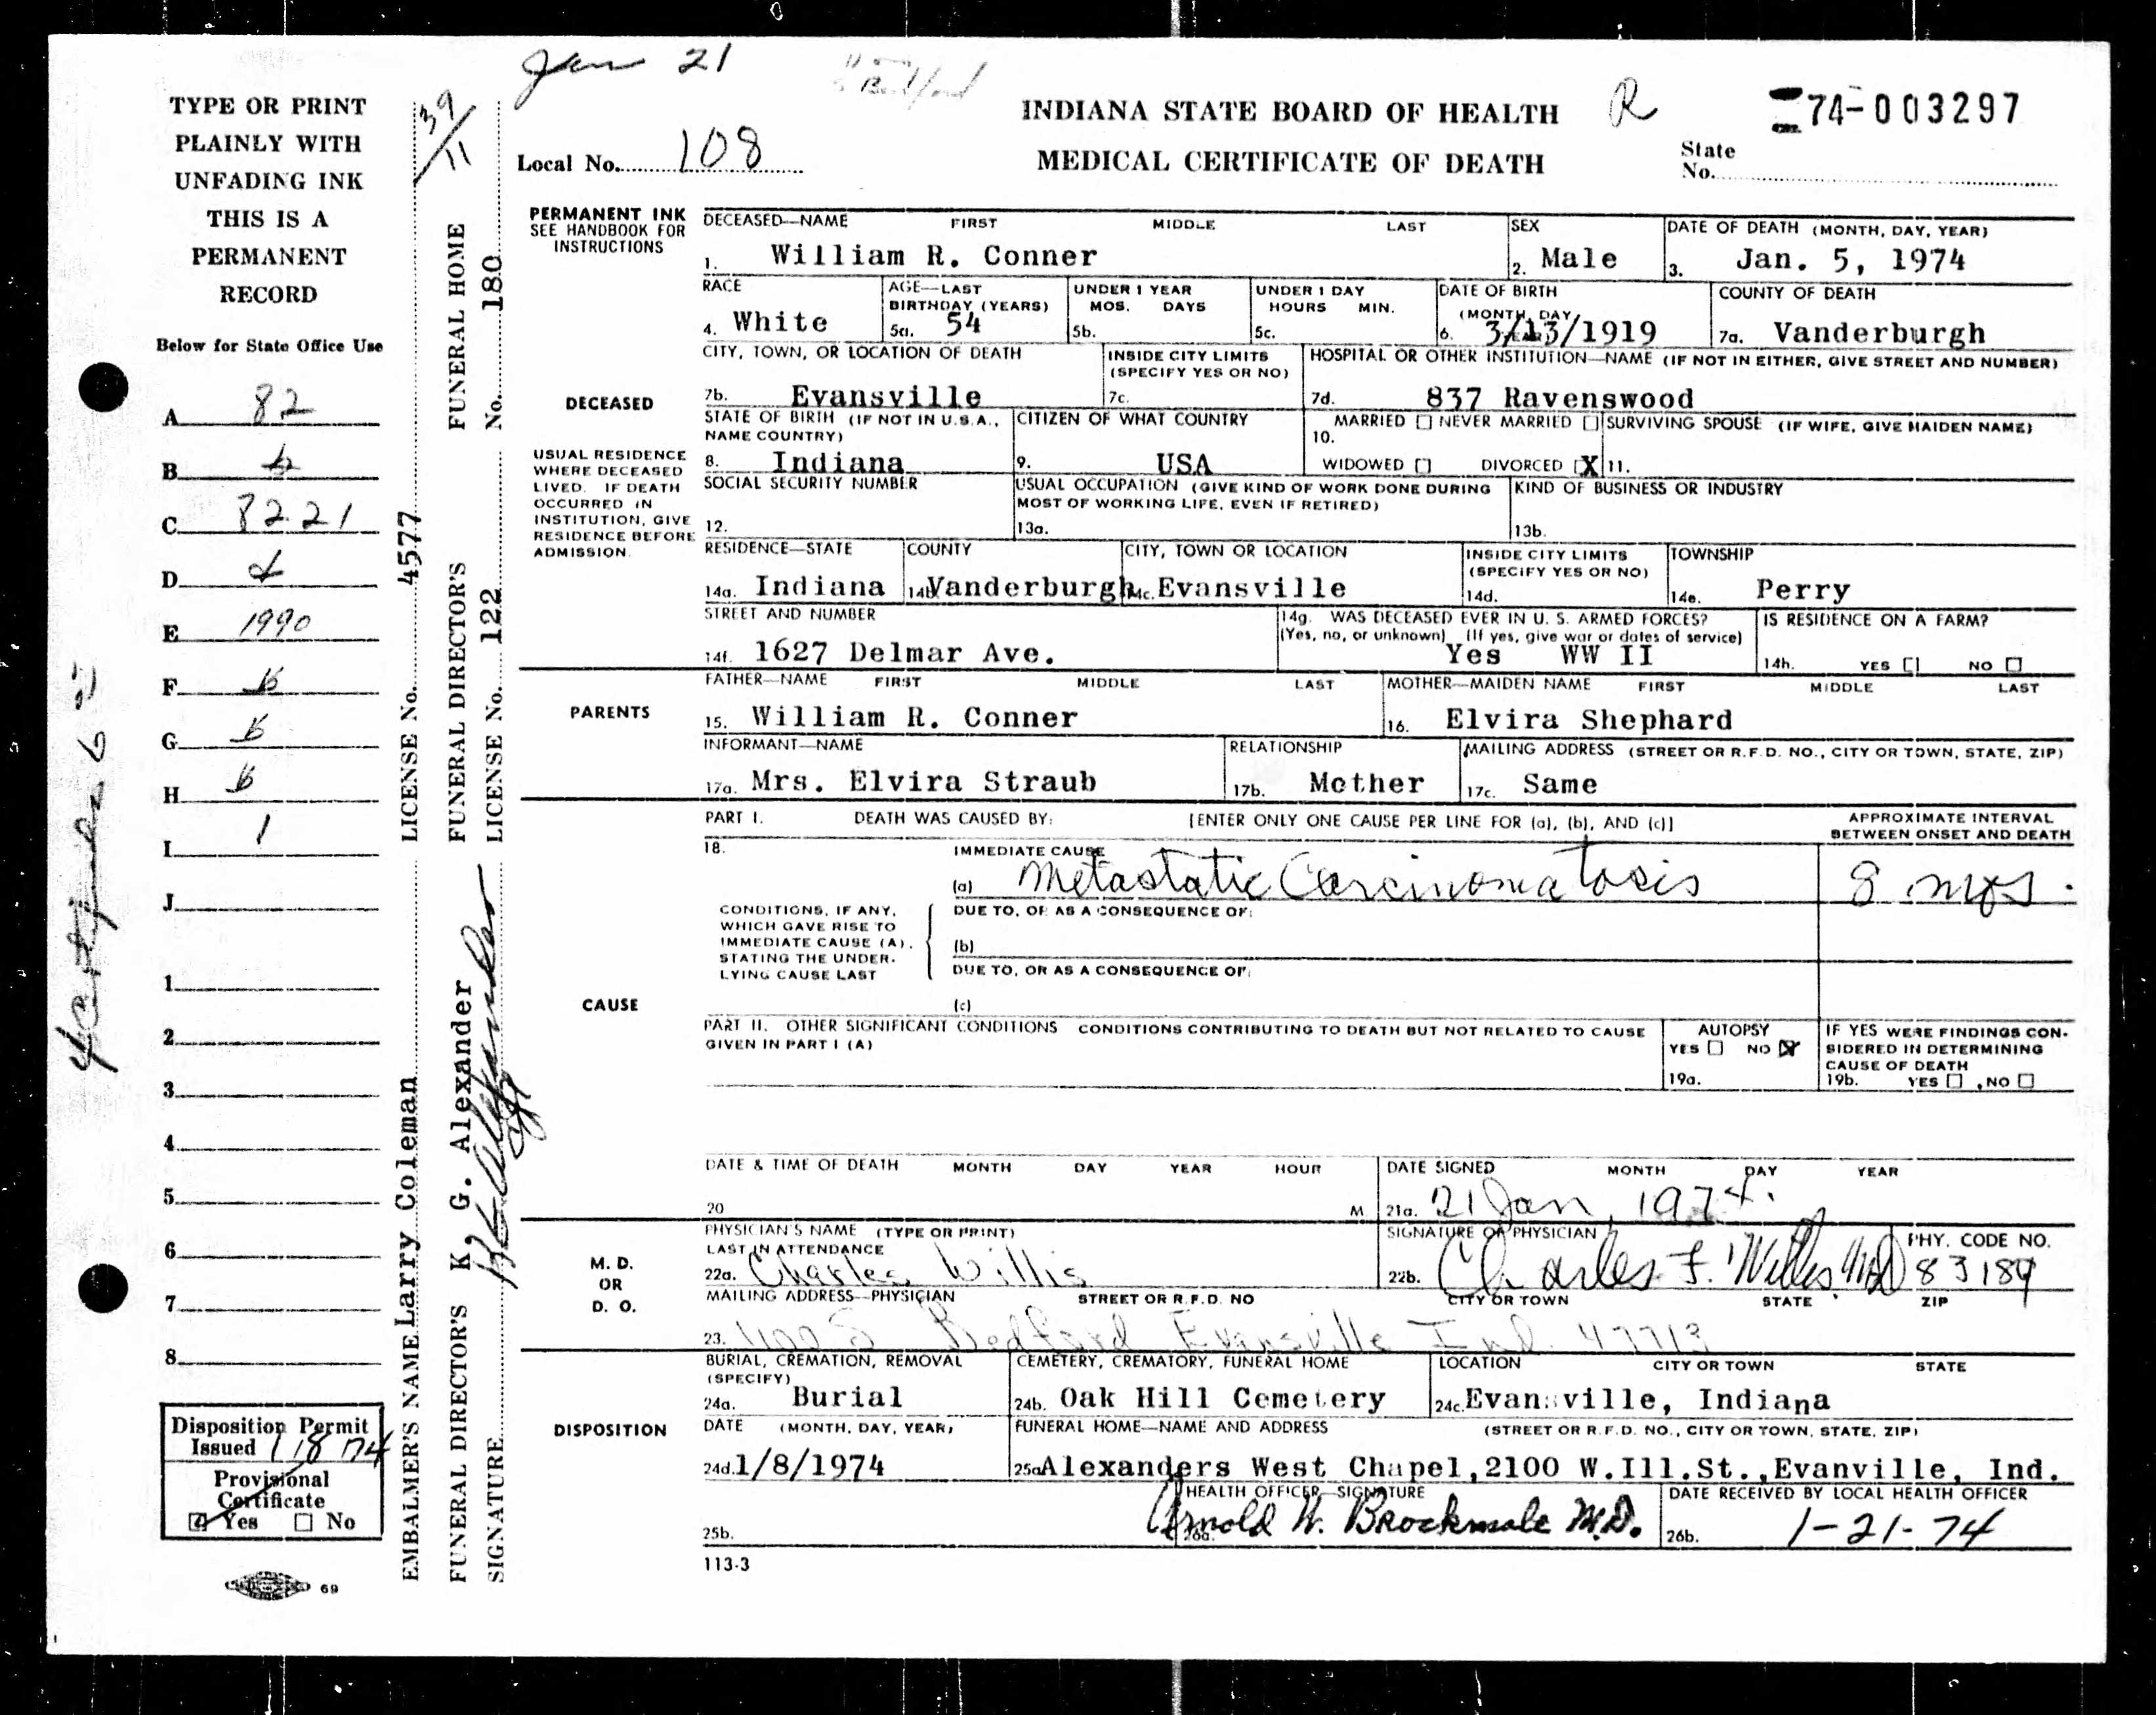 Jan 21
Bedford
TYPE OR PRINT
PLAINLY WITH
UNFADING INK
THIS IS A
PERMANENT
RECORD
Below for State Office Use
A 82
B
C 8221
D
E 1990
F
G
H
I 1
J
1
2
3
4
5
6
7
8
Disposition Permit
Issued 1 8 74
Provisional
Certificate
☑ Yes ☐ No
69
39/11
EMBALMER'S NAME Larry Coleman LICENSE No. 4577
FUNERAL DIRECTOR'S K. G. Alexander FUNERAL DIRECTOR'S FUNERAL HOME
SIGNATURE LICENSE No. 122 No. 180
INDIANA STATE BOARD OF HEALTH R 74-003297
Local No. 108 MEDICAL CERTIFICATE OF DEATH State
No.
PERMANENT INK
SEE HANDBOOK FOR
INSTRUCTIONS
DECEASED—NAME FIRST MIDDLE LAST SEX DATE OF DEATH (MONTH, DAY, YEAR)
1. William R. Conner 2. Male 3. Jan. 5, 1974
RACE AGE—LAST BIRTHDAY (YEARS) UNDER 1 YEAR MOS. DAYS UNDER 1 DAY HOURS MIN. DATE OF BIRTH (MONTH, DAY, COUNTY OF DEATH
4. White 5a. 54 5b. 5c. 6. 3/13/1919 7a. Vanderburgh
CITY, TOWN, OR LOCATION OF DEATH INSIDE CITY LIMITS (SPECIFY YES OR NO) HOSPITAL OR OTHER INSTITUTION—NAME (IF NOT IN EITHER, GIVE STREET AND NUMBER)
DECEASED
7b. Evansville 7c. 7d. 837 Ravenswood
STATE OF BIRTH (IF NOT IN U.S.A., NAME COUNTRY) CITIZEN OF WHAT COUNTRY MARRIED ☐ NEVER MARRIED ☐ SURVIVING SPOUSE (IF WIFE, GIVE MAIDEN NAME)
8. Indiana 9. USA 10. WIDOWED ☐ DIVORCED ☒ 11.
USUAL RESIDENCE
WHERE DECEASED
LIVED. IF DEATH
OCCURRED IN
INSTITUTION, GIVE
RESIDENCE BEFORE
ADMISSION.
SOCIAL SECURITY NUMBER USUAL OCCUPATION (GIVE KIND OF WORK DONE DURING MOST OF WORKING LIFE, EVEN IF RETIRED) KIND OF BUSINESS OR INDUSTRY
12. 13a. 13b.
RESIDENCE—STATE COUNTY CITY, TOWN OR LOCATION INSIDE CITY LIMITS (SPECIFY YES OR NO) TOWNSHIP
14a. Indiana 14b. Vanderburgh 14c. Evansville 14d. 14e. Perry
STREET AND NUMBER 14g. WAS DECEASED EVER IN U. S. ARMED FORCES? IS RESIDENCE ON A FARM?
(Yes, no, or unknown) (If yes, give war or dates of service)
14f. 1627 Delmar Ave. Yes WW II 14h. YES ☐ NO ☐
PARENTS
FATHER—NAME FIRST MIDDLE LAST MOTHER—MAIDEN NAME FIRST MIDDLE LAST
15. William R. Conner 16. Elvira Shephard
INFORMANT—NAME RELATIONSHIP MAILING ADDRESS (STREET OR R.F.D. NO., CITY OR TOWN, STATE, ZIP)
17a. Mrs. Elvira Straub 17b. Mother 17c. Same
PART I. DEATH WAS CAUSED BY: [ENTER ONLY ONE CAUSE PER LINE FOR (a), (b), AND (c)] APPROXIMATE INTERVAL BETWEEN ONSET AND DEATH
18. IMMEDIATE CAUSE
(a) Metastatic Carcinomatosis 8 mos.
CONDITIONS, IF ANY,
WHICH GAVE RISE TO
IMMEDIATE CAUSE (A),
STATING THE UNDER-
LYING CAUSE LAST
DUE TO, OR AS A CONSEQUENCE OF:
(b)
DUE TO, OR AS A CONSEQUENCE OF:
(c)
CAUSE
PART II. OTHER SIGNIFICANT CONDITIONS CONDITIONS CONTRIBUTING TO DEATH BUT NOT RELATED TO CAUSE GIVEN IN PART I (A)
AUTOPSY
YES ☐ NO ☒
19a.
IF YES WERE FINDINGS CON-
SIDERED IN DETERMINING
CAUSE OF DEATH
19b. YES ☐ , NO ☐
DATE & TIME OF DEATH MONTH DAY YEAR HOUR DATE SIGNED MONTH DAY YEAR
20 M 21a. 21 Jan, 1974.
M. D.
OR
D. O.
PHYSICIAN'S NAME (TYPE OR PRINT) SIGNATURE OF PHYSICIAN PHY. CODE NO.
LAST IN ATTENDANCE
22a. Charles Willis 22b. Charles F. Willis MD 83184
MAILING ADDRESS—PHYSICIAN STREET OR R.F.D. NO CITY OR TOWN STATE ZIP
23. 1100 S Bedford Evansville Ind. 47713
DISPOSITION
BURIAL, CREMATION, REMOVAL (SPECIFY) CEMETERY, CREMATORY, FUNERAL HOME LOCATION CITY OR TOWN STATE
24a. Burial 24b. Oak Hill Cemetery 24c. Evansville, Indiana
DATE (MONTH, DAY, YEAR) FUNERAL HOME—NAME AND ADDRESS (STREET OR R.F.D. NO., CITY OR TOWN, STATE, ZIP)
24d. 1/8/1974 25a. Alexanders West Chapel,2100 W.Ill.St.,Evanville, Ind.
HEALTH OFFICER—SIGNATURE DATE RECEIVED BY LOCAL HEALTH OFFICER
25b. 26a. Arnold W. Brockmole M.D. 26b. 1-21-74
113-3